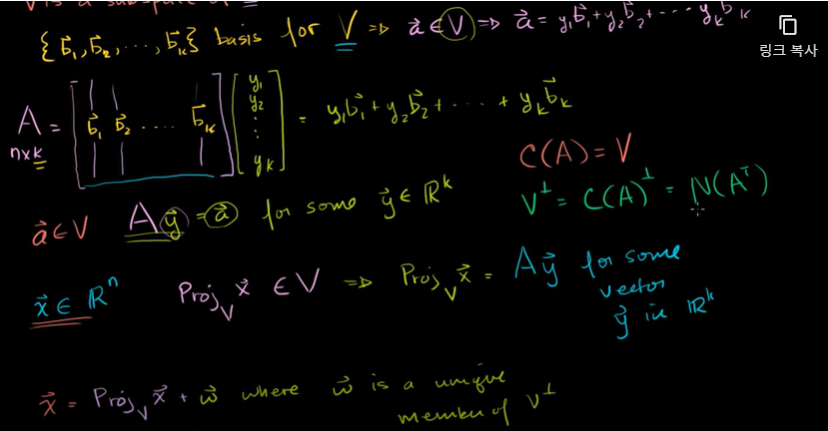 V is a subspace of
{b⃗₁, b⃗₂, ..., b⃗ₖ} basis for V ⇒ a⃗ ∈ V ⇒ a⃗ = y₁b⃗₁ + y₂b⃗₂ + ··· yₖb⃗ₖ
링크 복사
A = [b⃗₁ b⃗₂ .... b⃗ₖ] [y₁ y₂ : : yₖ] = y₁b⃗₁ + y₂b⃗₂ + ···· + yₖb⃗ₖ
n×k
C(A) = V
V^⊥ = C(A)^⊥ = N(Aᵀ)
a⃗ ∈ V Ay⃗ = a⃗ for some y⃗ ∈ ℝᵏ
x⃗ ∈ ℝⁿ Proj_V x⃗ ∈ V ⇒ Proj_V x⃗ = Ay⃗ for some
vector
y⃗ in ℝᵏ
x⃗ = Proj_V x⃗ + w⃗ where w⃗ is a unique
member of V^⊥